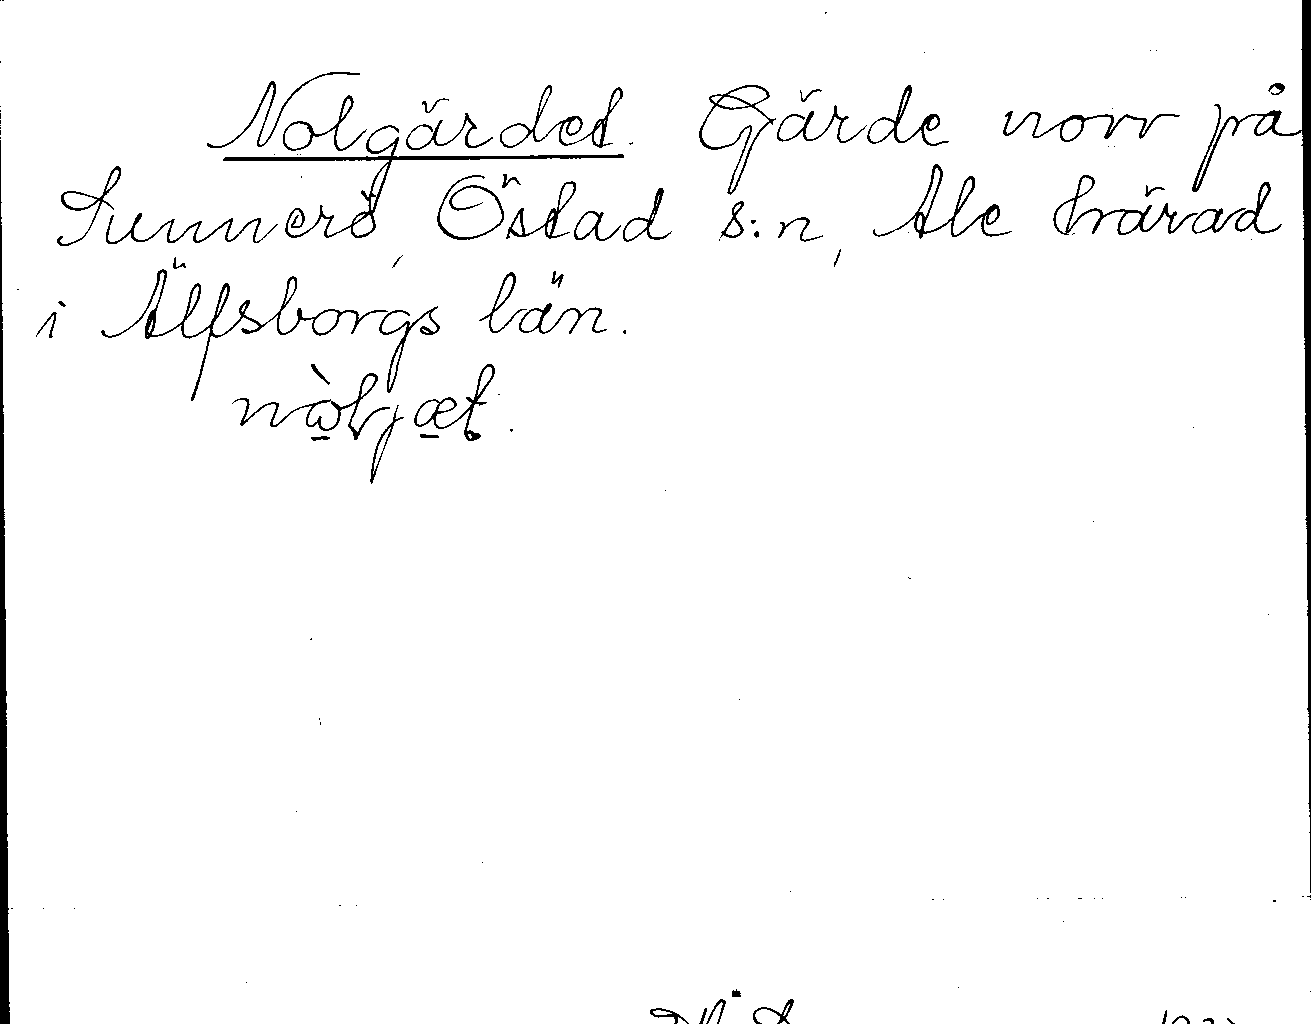 Nolgärdet. Gärde norr på
Sunnerö, Östad s:n, Ale härad
i Älfsborgs län.